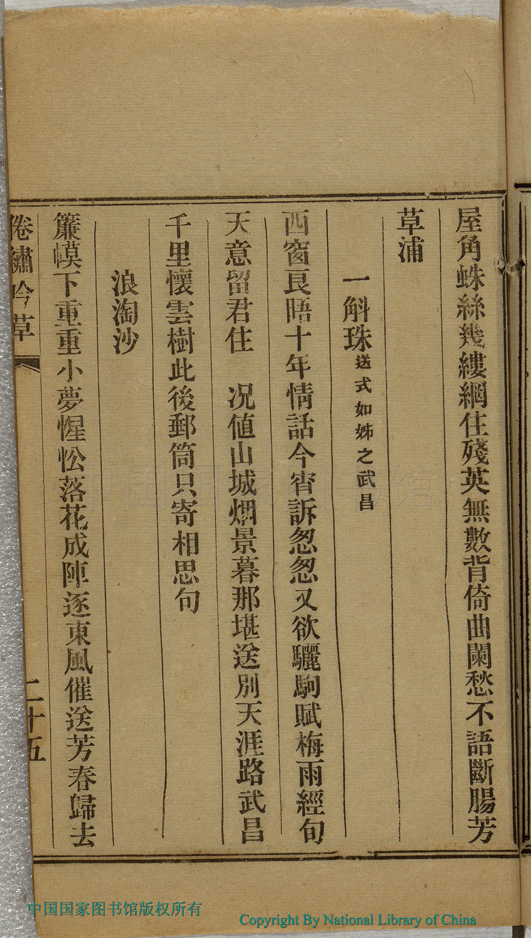 屋角蛛絲幾縷網住殘英無數背倚曲闌愁不語斷腸芳
草浦
一斛珠送式如姊之武昌
西窗良晤十年情話今宵訴怱怱又欲驪駒賦梅雨經旬
天意留君住　况値山城烟景暮那堪送別天涯路武昌
千里懷雲樹此後郵筒只寄相思句
浪淘沙
簾幙下重重小夢惺忪落花成陣逐東風催送芳春歸去
倦繡吟草
二十五
中国国家图书馆版权所有
Copyright By National Library of China